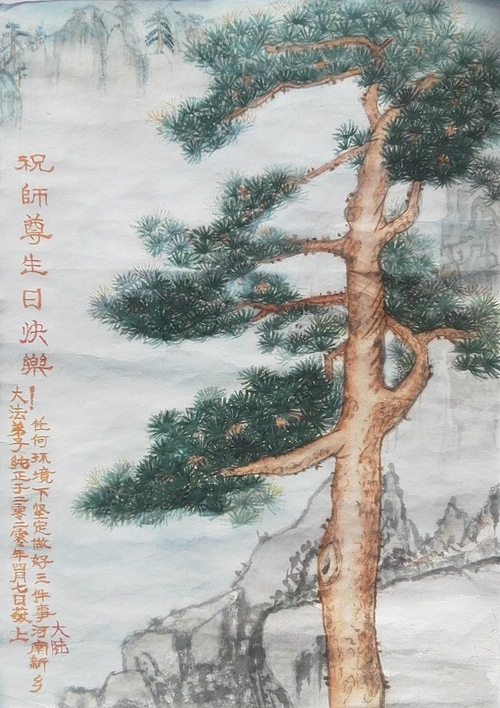 祝師尊生日快樂!
大陆
任何环境下坚定做好三件事河南新乡
大法弟子纯正于二零二零年四月七日敬上